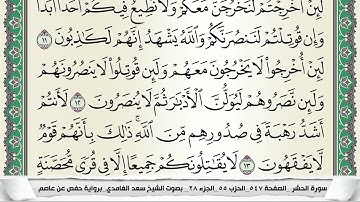 لَئِنْ أُخْرِجْتُمْ لَنَخْرُجَنَّ مَعَكُمْ وَلَا نُطِيعُ فِيكُمْ أَحَدًا أَبَدًا
وَإِن قُوتِلْتُمْ لَنَنصُرَنَّكُمْ وَاللَّهُ يَشْهَدُ إِنَّهُمْ لَكَاذِبُونَ ١١
لَئِنْ أُخْرِجُوا لَا يَخْرُجُونَ مَعَهُمْ وَلَئِن قُوتِلُوا لَا يَنصُرُونَهُمْ
وَلَئِن نَّصَرُوهُمْ لَيُوَلُّنَّ الْأَدْبَارَ ثُمَّ لَا يُنصَرُونَ ١٢ لَأَنتُمْ
أَشَدُّ رَهْبَةً فِي صُدُورِهِم مِّنَ اللَّهِ ذَٰلِكَ بِأَنَّهُمْ قَوْمٌ
لَّا يَفْقَهُونَ ١٣ لَا يُقَاتِلُونَكُمْ جَمِيعًا إِلَّا فِي قُرًى مُّحَصَّنَةٍ
سورة الحشر_ الصفحة ٥٤٧_الحزب ٥٥_الجزء ٢٨_ بصوت الشيخ سعد الغامدي_برواية حفص عن عاصم